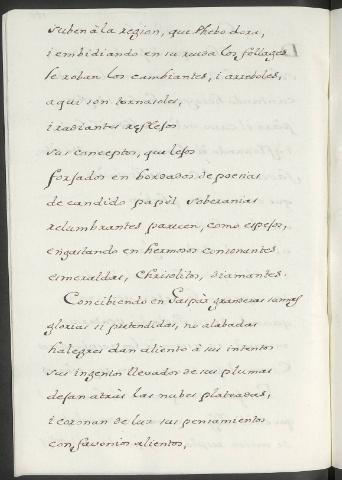 suben à la region, que Phebo dora,
i embidiando en su rueda los follages
le roban los cambiantes, i arreboles,
aqui son tornasoles,
i radiantes reflexos
sus conceptos, que lexos
forjados en bordados de poesias
de candido papèl soberanias
relumbrantes parecen, como espejos,
engastando en hermosos consonantes
esmeraldas, Chrisolitos, diamantes.
Concibiendo en Gaspàr grandezas sumas
glorias si pretendidas, no alabadas
halegres dan aliento à sus intentos
sus ingenios llevados de sus plumas
dexan atràs las nubes plateadas,
i coronan de luz sus pensamientos
con favonios alientos,